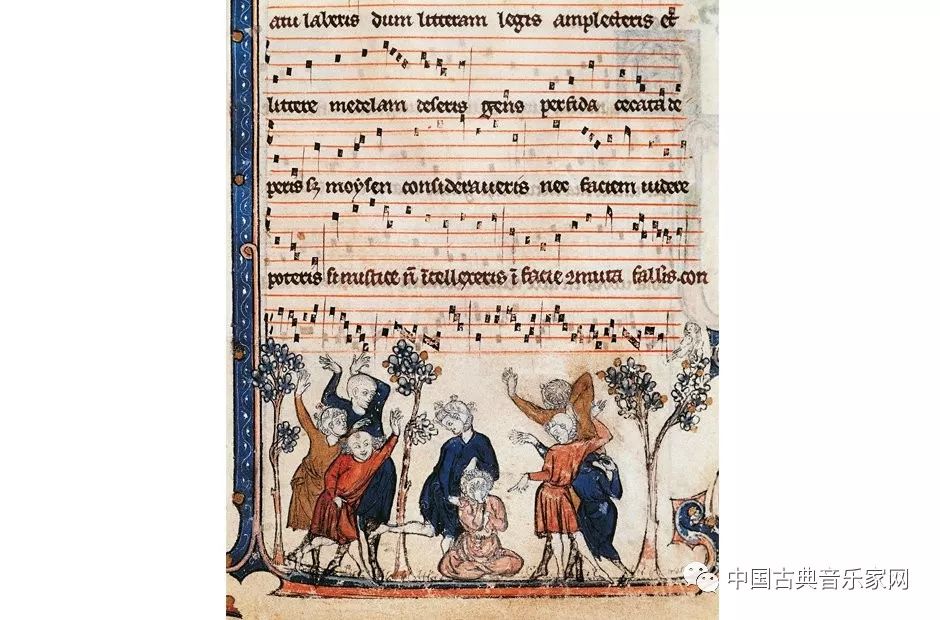 atu laberis dum litteram legis amplecteris et
littere medelam deseris gens perfida cecata de
peris si moysen consideraueris nec faciem uidere
poteris si mistice n̄ ītellexeris ī facie falleris con
中国古典音乐家网